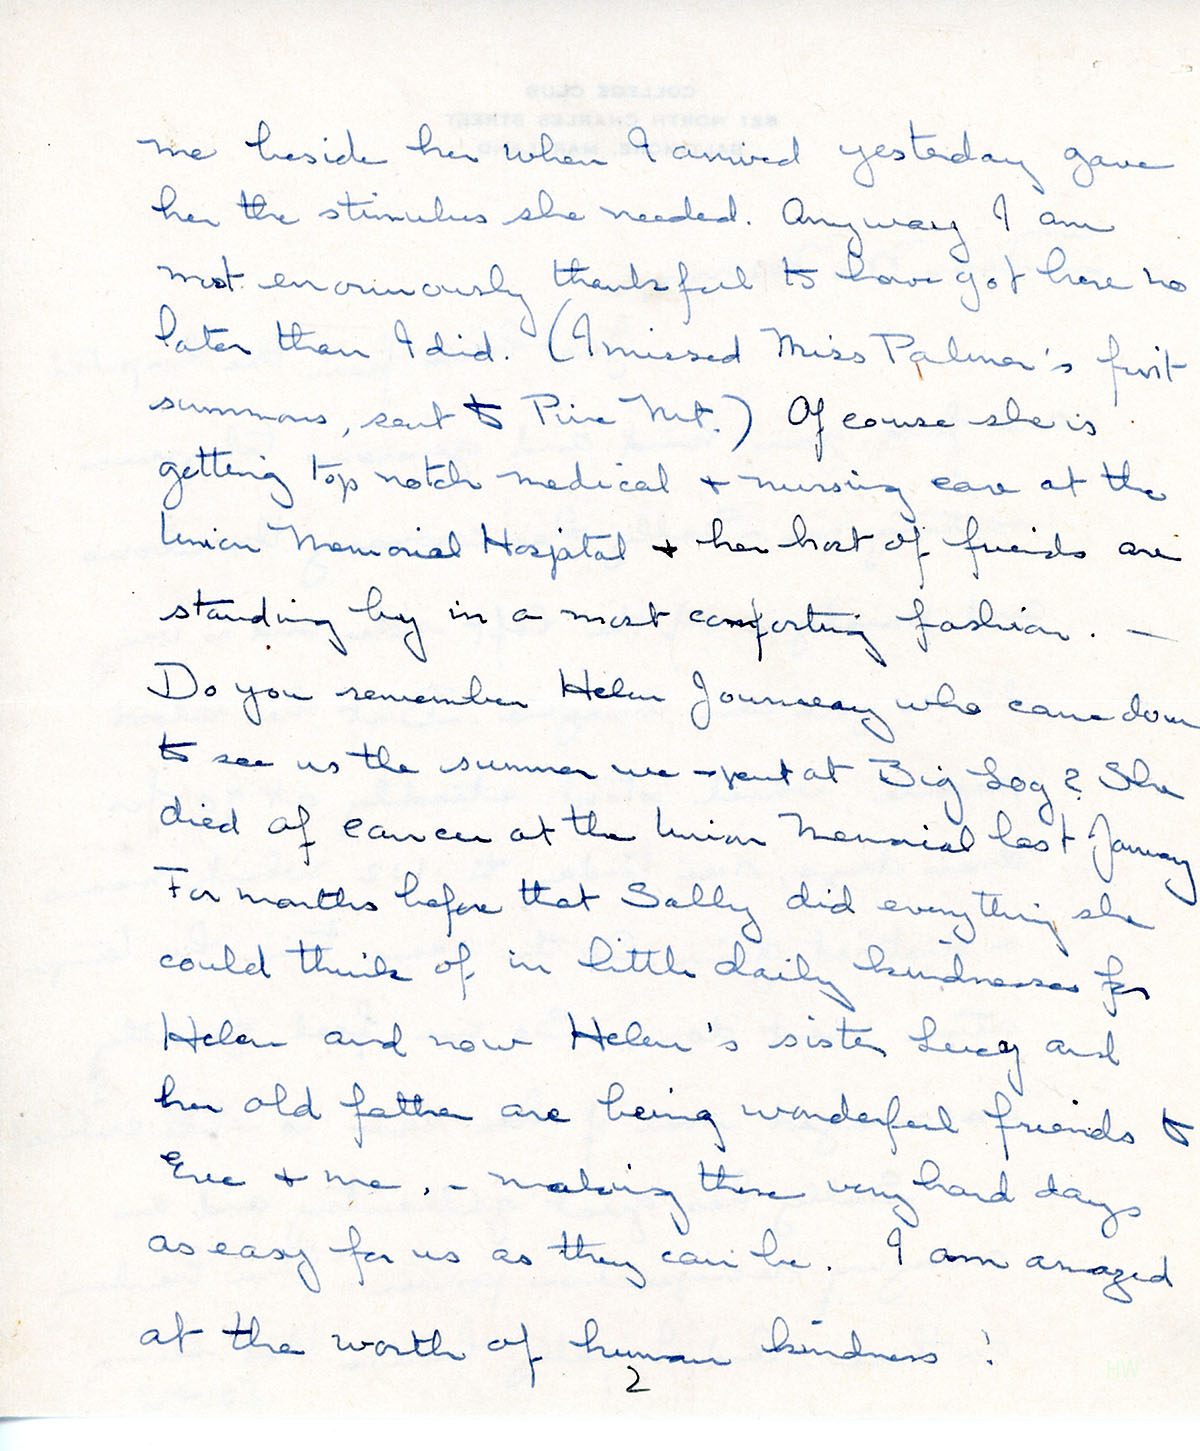 me beside her when I arrived yesterday gave
her the stimulus she needed. Anyway I am
most enormously thankful to have got here no
later than I did. (I missed Miss Palmer's first
summons, sent to Pine Mt.) Of course she is
getting top notch medical + nursing care at the
Union Memorial Hospital + her host of friends are
standing by in a most comforting fashion. —
Do you remember Helen Journeay who came down
to see us the summer we spent at Big Log? She
died of cancer at the Union Memorial last January
For months before that Sally did everything she
could think of in little daily kindnesses for
Helen and now Helen's sister Lucy and
her old father are being wonderful friends to
Eve + me, – making these very hard days
as easy for us as they can be. I am amazed
at the worth of human kindness!
2
COLLEGE CLUB
821 NORTH CHARLES STREET
BALTIMORE, MARYLAND
HW